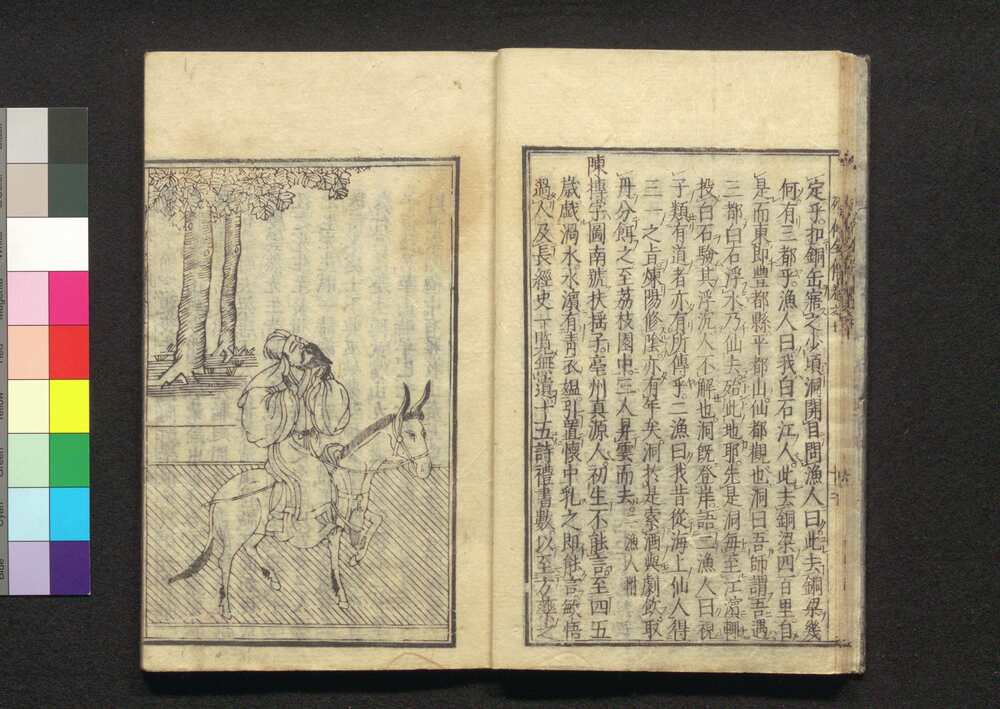 定乎扣銅缶寤之少頃洞開目問漁人曰此去銅梁幾
何有三都乎漁人曰我白石江人此去銅梁四百里自
是而東即豐都縣平都山仙都觀也洞曰吾師謂吾遇
三都白石浮水乃仙去殆此地耶先是洞毎至江濵輙
投白石驗其浮沉人不解也洞旣登岸語二漁人曰視
子類有道者亦有所傳乎二漁曰我昔從海上仙人得
三一之旨煉陽修陰亦有年矣洞於是索酒與劇飲取
丹分餌之至荔枝圃中三人昇雲而去
陳摶字圖南號扶揺子亳州真源人初生不能言至四五
歳戯渦水水濵有靑衣媪引置懷中乳之即能言敏悟
過人及長經史一覧無遺十五詩禮書數以至方藥之